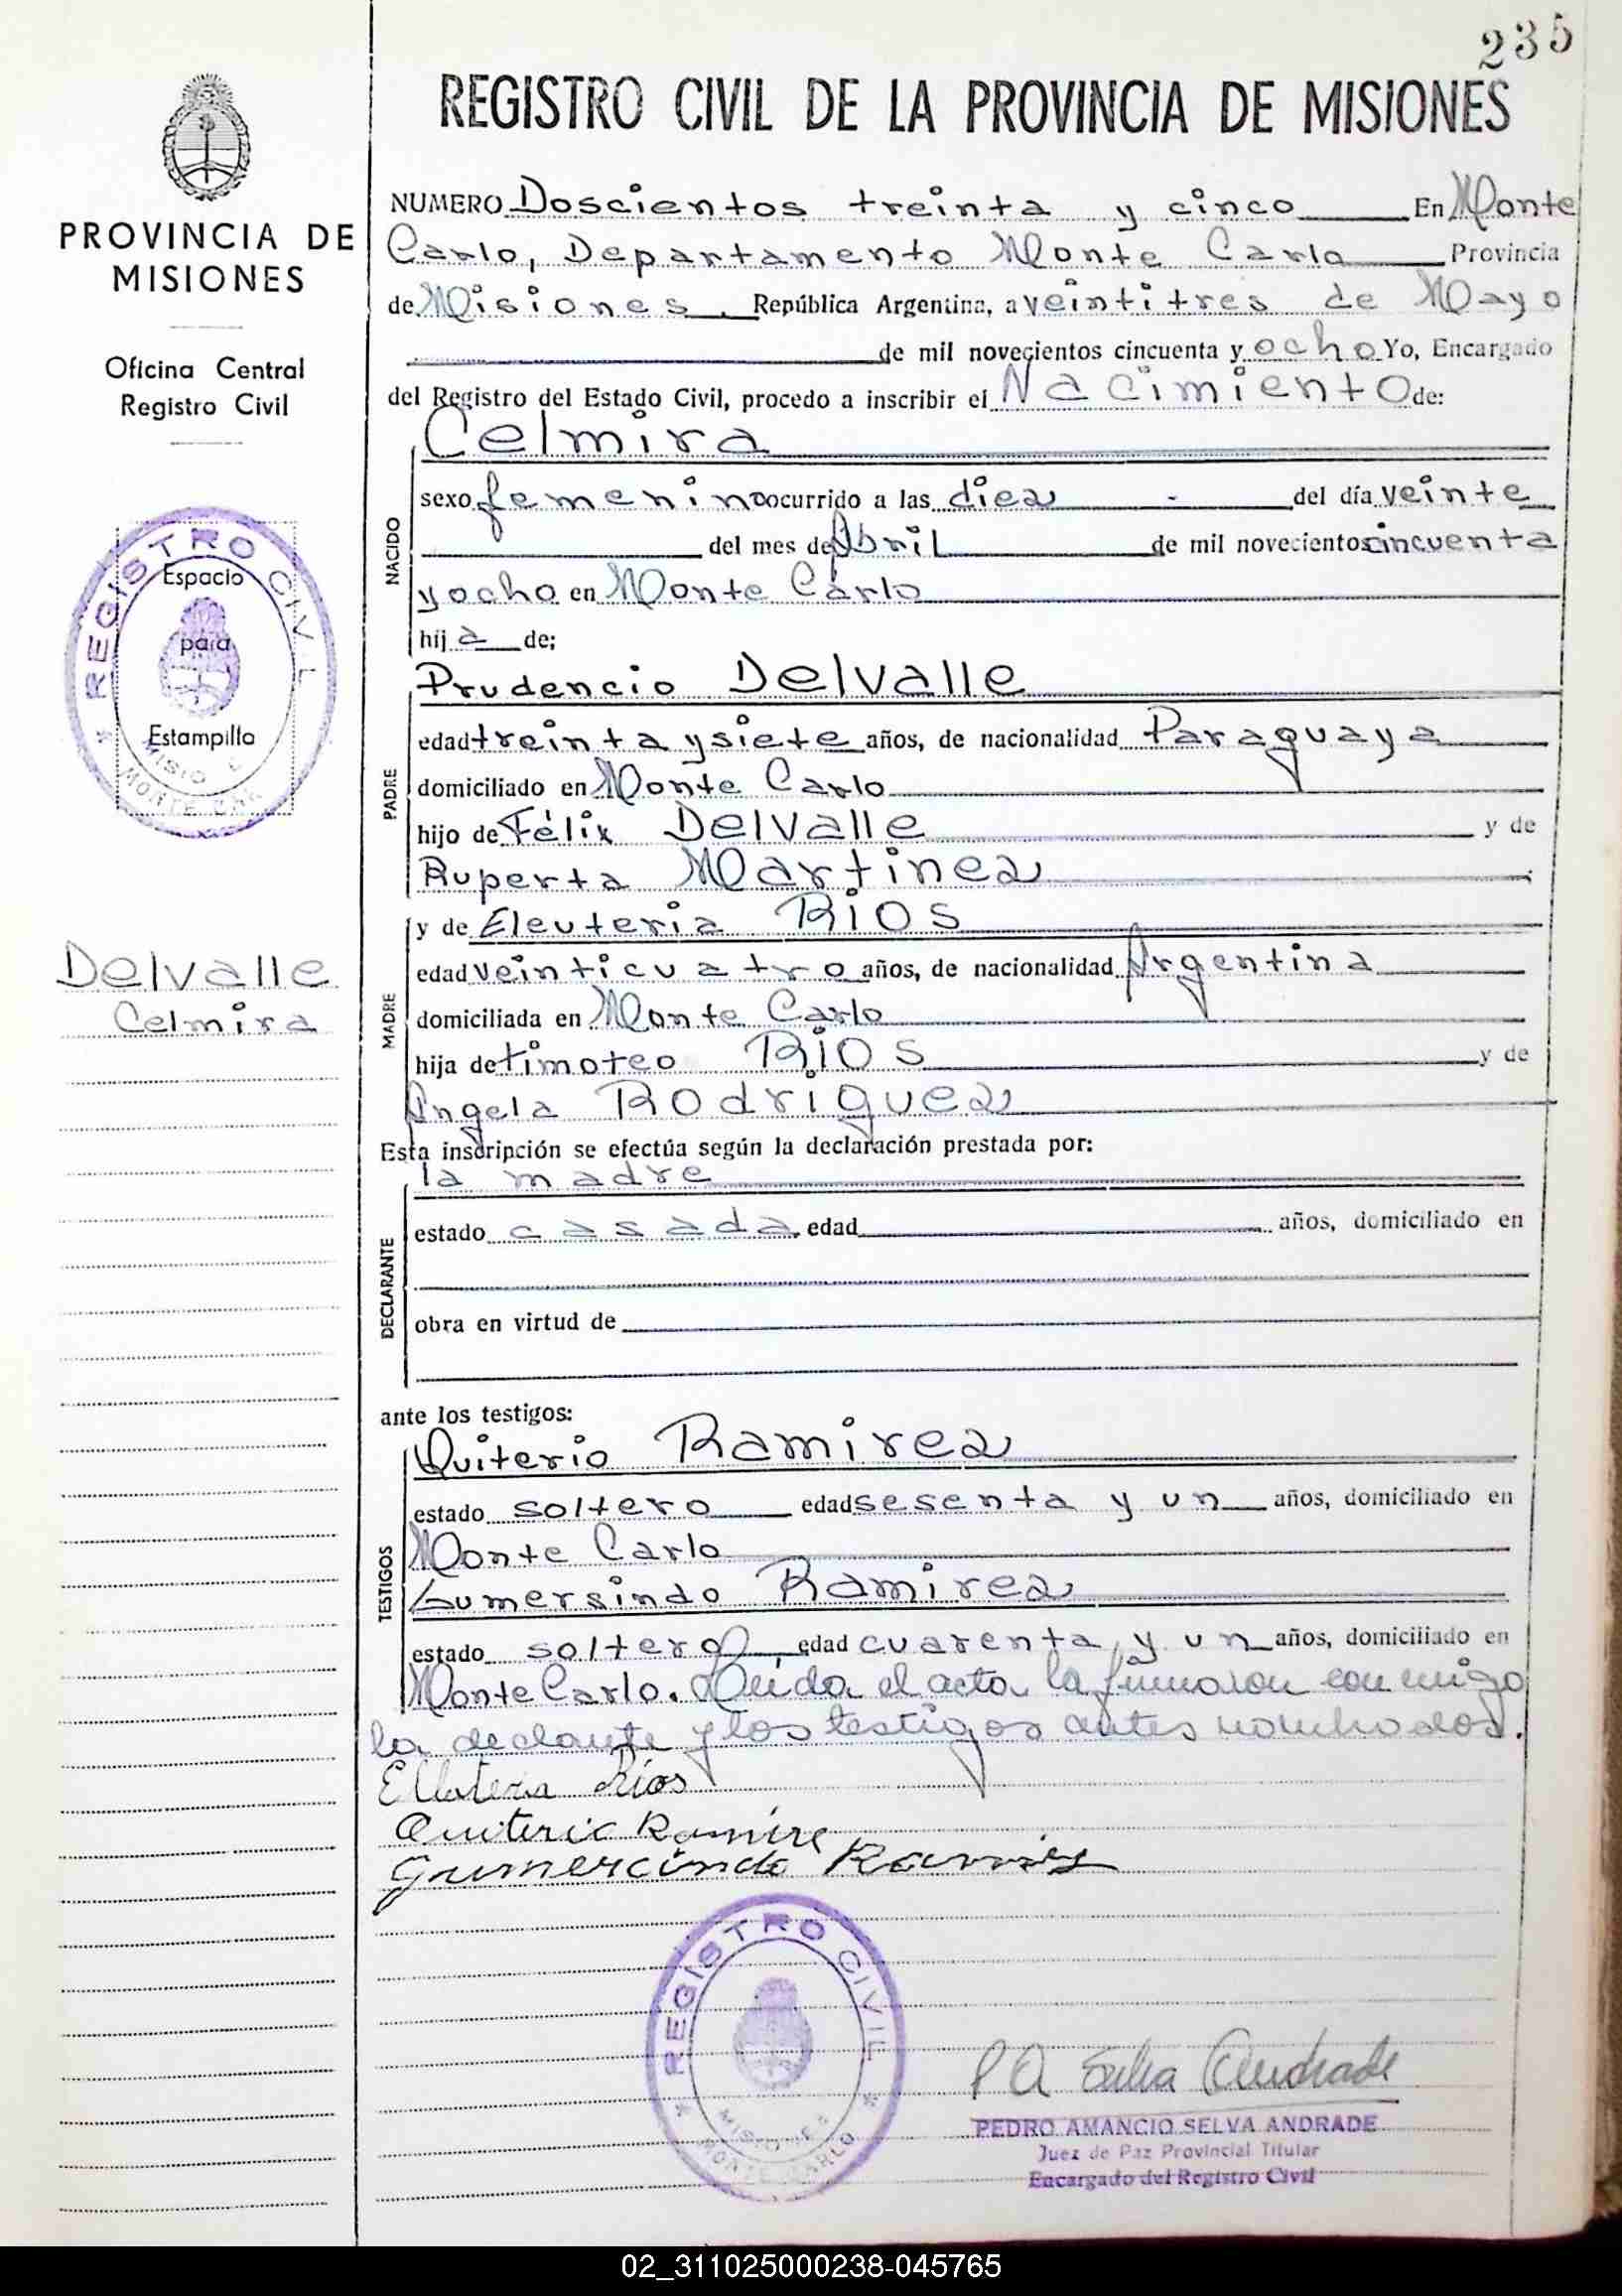 235
REGISTRO CIVIL DE LA PROVINCIA DE MISIONES
PROVINCIA DE
MISIONES
Oficina Central
Registro Civil
REGISTRO CIVIL
Espacio
para
Estampilla
MISIO
MONTE CAR
Delvalle
Celmira
NUMERO Doscientos treinta y cinco En Monte
Carlo, Departamento Monte Carlo Provincia
de Misiones, República Argentina, a veintitres de Mayo
de mil novecientos cincuenta y ocho Yo, Encargado
del Registro del Estado Civil, procedo a inscribir el Nacimiento de:
NACIDO
Celmira
sexo femenino ocurrido a las diez - del día veinte
del mes de Abril de mil novecientos cincuenta
y ocho en Monte Carlo
hij a de;
PADRE
Prudencio Delvalle
edad treinta y siete años, de nacionalidad Paraguaya
domiciliado en Monte Carlo
hijo de Félix Delvalle y de
Ruperta Martinez
MADRE
y de Eleuteria Rios
edad veinticuatro años, de nacionalidad Argentina
domiciliada en Monte Carlo
hija de timoteo Rios y de
Angela Rodriguez
Esta inscripción se efectúa según la declaración prestada por:
DECLARANTE
la madre
estado casada, edad años, domiciliado en
obra en virtud de
ante los testigos:
TESTIGOS
Quiterio Ramirez
estado soltero edad sesenta y un años, domiciliado en
Monte Carlo
Gumersindo Ramirez
estado soltero, edad cuarenta y un años, domiciliado en
Monte Carlo. Leida el acta la firmaron conmigo
la declante y los testigos antes nombrados.
Elluteria Rios
Quiterio Ramire
Gumercindo
REGISTRO CIVIL
MISIONES
MONTE CARLO
P A Selva Andrade
PEDRO AMANCIO SELVA ANDRADE
Juez de Paz Provincial Titular
Encargado del Registro Civil
02_311025000238-045765